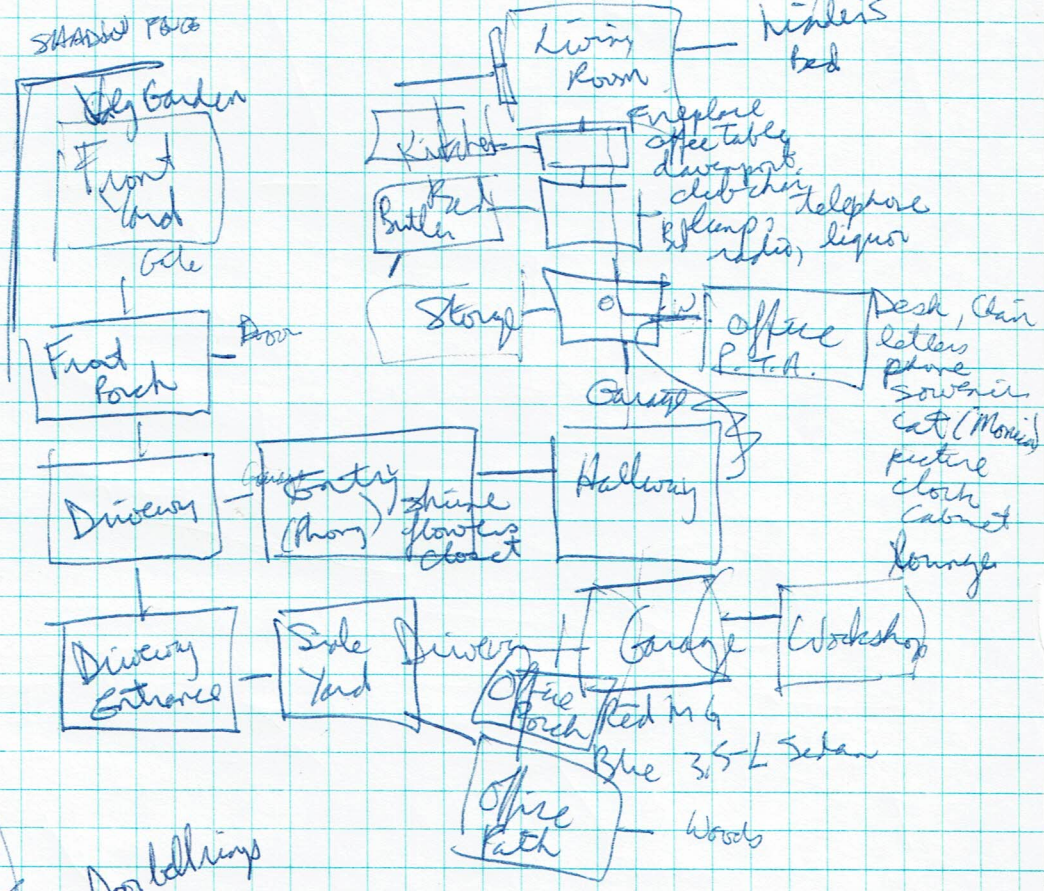 SHADOW FENCE
Veg Garden
Front
Yard
Gate
Front
Porch
Door
Driveway
Entry
(Phong)
shrine
flowers
closet
Hallway
Driveway
Entrance
Side
Yard
Driveway
Garage
Workshop
Office
Porch
Red MG
Blue 3.5-L Sedan
Office
Path
Woods
Doorbell rings
Living
Room
Bed
Kitchen
Fireplace
coffee table
davenport
club chair
telephone
lamp
radio, liquor
Butler
Bed
Storage
O
Office
P.T.A.
Garage
Desk, Chair
letters
phone
souvenirs
cat (Monica)
picture
clock
cabinet
lounge